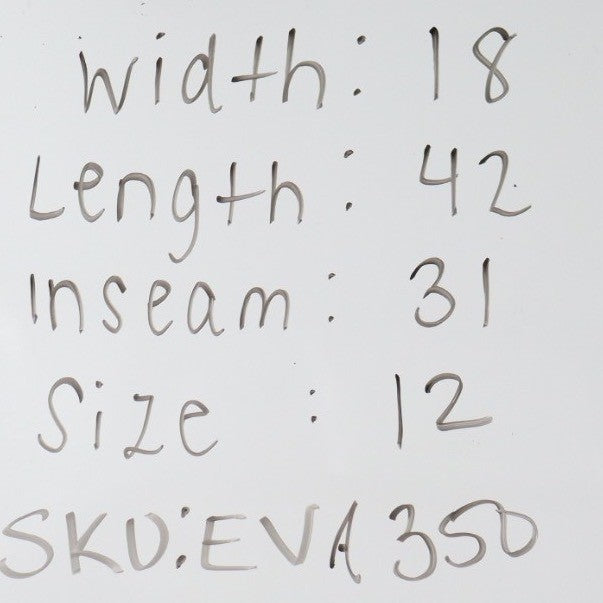 Width: 18
Length: 42
Inseam: 31
Size : 12
SKU:EVA350